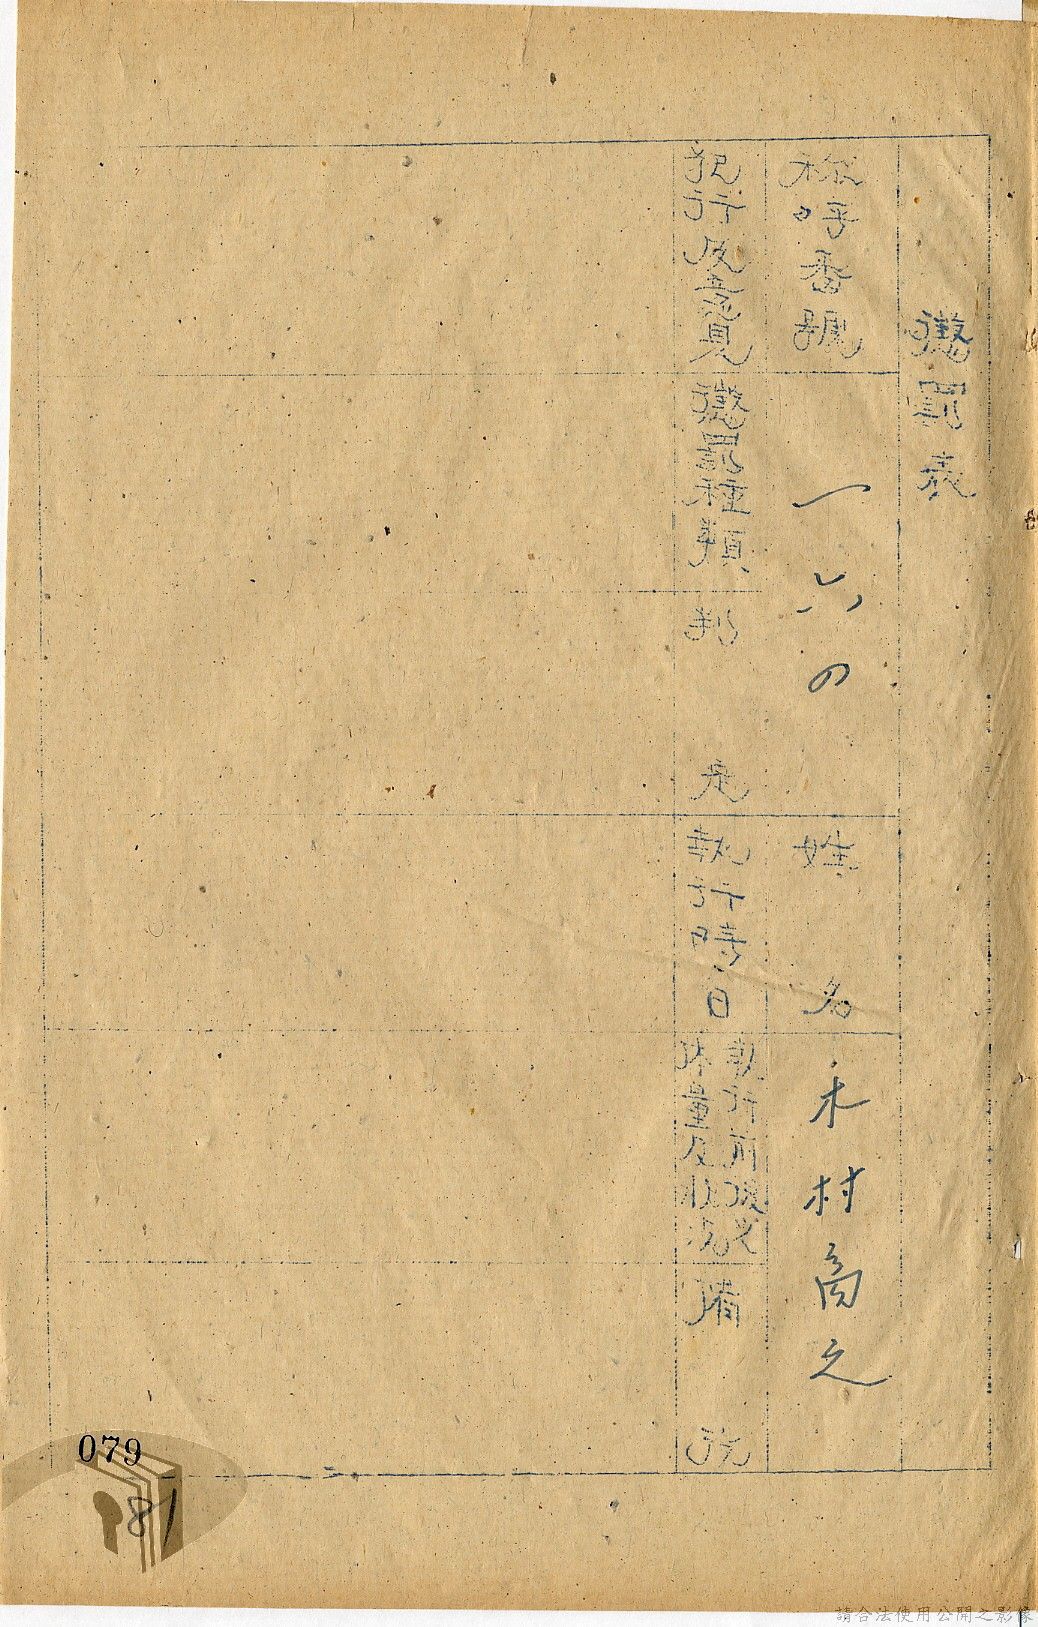 懲罰表
称呼番號
一六〇
姓名
木村高之
犯行及意見
懲罰種類
判定
執行時日
執行前後ノ
体量及状況
備考
079
81
請合法使用公開之影像